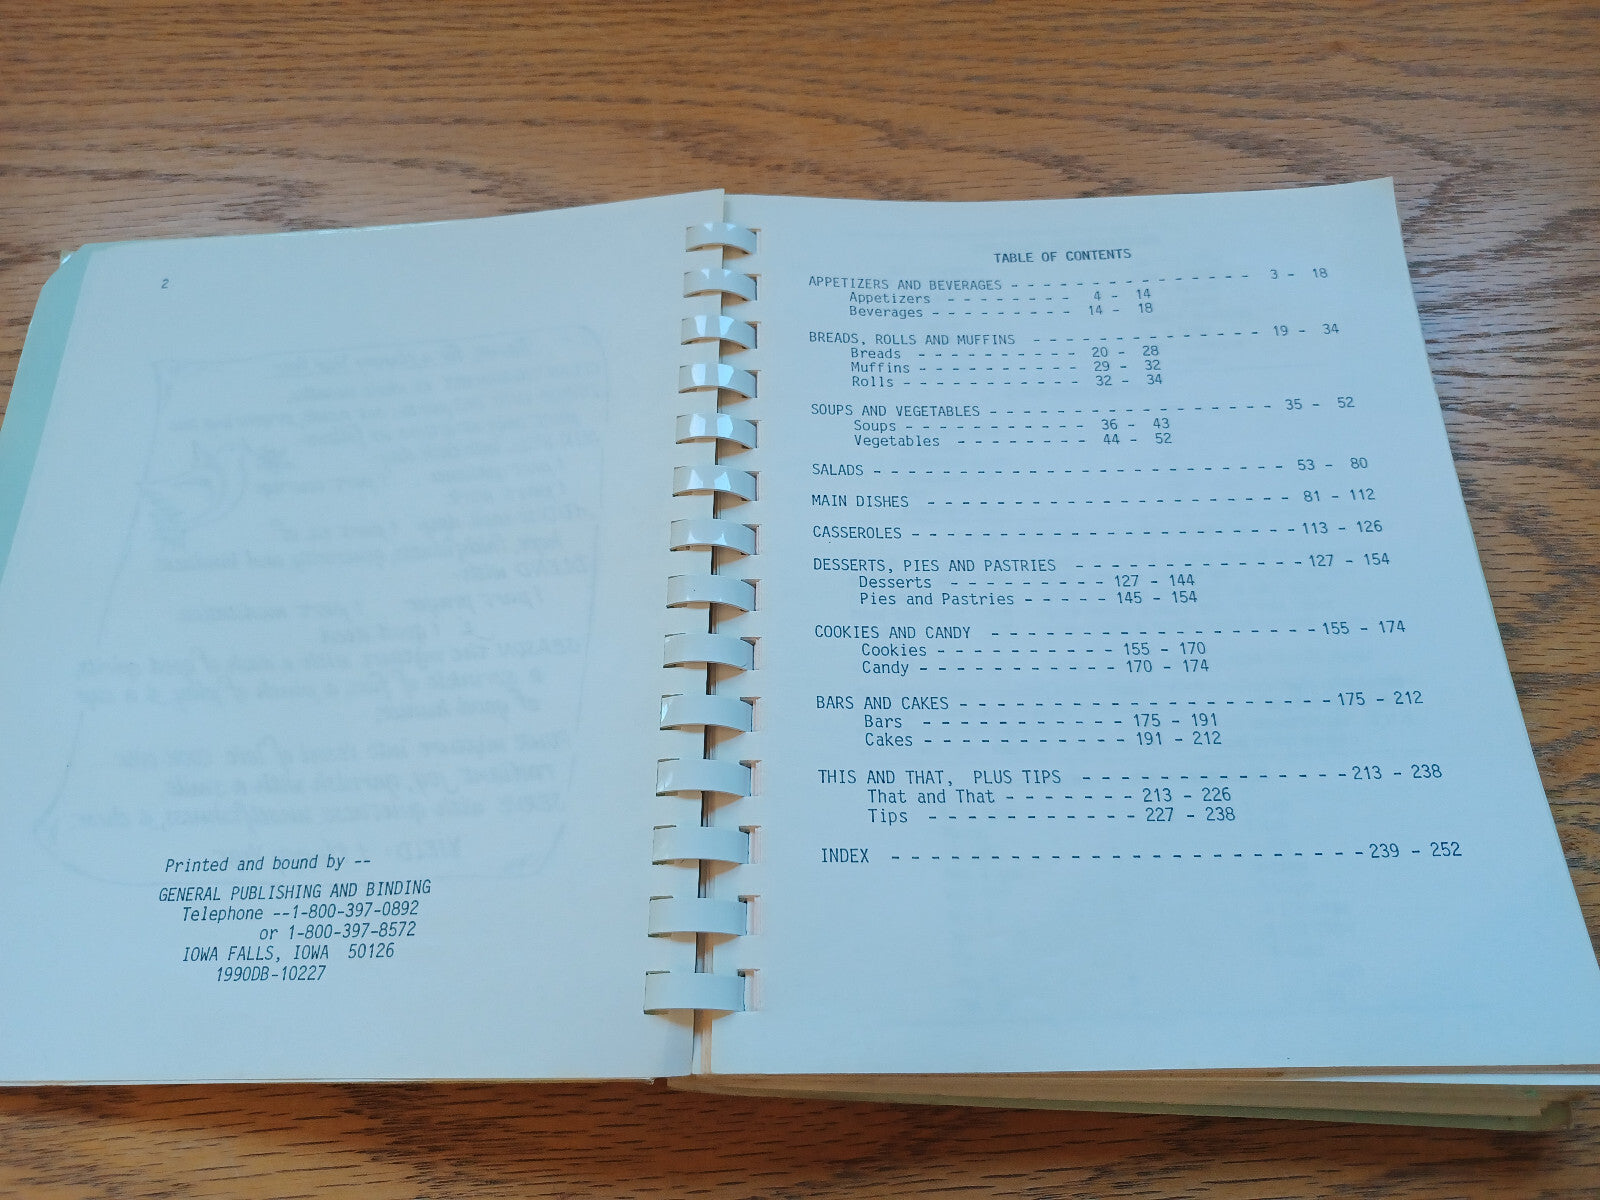 2
Printed and bound by --
GENERAL PUBLISHING AND BINDING
Telephone --1-800-397-0892
or 1-800-397-8572
IOWA FALLS, IOWA 50126
1990DB-10227
TABLE OF CONTENTS
APPETIZERS AND BEVERAGES - - - - - - - - - - - - - - - 3 - 18
Appetizers - - - - - - - - 4 - 14
Beverages - - - - - - - - - 14 - 18
BREADS, ROLLS AND MUFFINS - - - - - - - - - - - - - - 19 - 34
Breads - - - - - - - - - - 20 - 28
Muffins - - - - - - - - - - 29 - 32
Rolls - - - - - - - - - - - 32 - 34
SOUPS AND VEGETABLES - - - - - - - - - - - - - - - - - 35 - 52
Soups - - - - - - - - - - - 36 - 43
Vegetables - - - - - - - - 44 - 52
SALADS - - - - - - - - - - - - - - - - - - - - - - - - 53 - 80
MAIN DISHES - - - - - - - - - - - - - - - - - - - - - 81 - 112
CASSEROLES - - - - - - - - - - - - - - - - - - - - - - 113 - 126
DESSERTS, PIES AND PASTRIES - - - - - - - - - - - - - 127 - 154
Desserts - - - - - - - - - 127 - 144
Pies and Pastries - - - - - 145 - 154
COOKIES AND CANDY - - - - - - - - - - - - - - - - - - 155 - 174
Cookies - - - - - - - - - - 155 - 170
Candy - - - - - - - - - - - 170 - 174
BARS AND CAKES - - - - - - - - - - - - - - - - - - - - 175 - 212
Bars - - - - - - - - - - - 175 - 191
Cakes - - - - - - - - - - - 191 - 212
THIS AND THAT, PLUS TIPS - - - - - - - - - - - - - - 213 - 238
That and That - - - - - - - 213 - 226
Tips - - - - - - - - - - - 227 - 238
INDEX - - - - - - - - - - - - - - - - - - - - - - - - 239 - 252